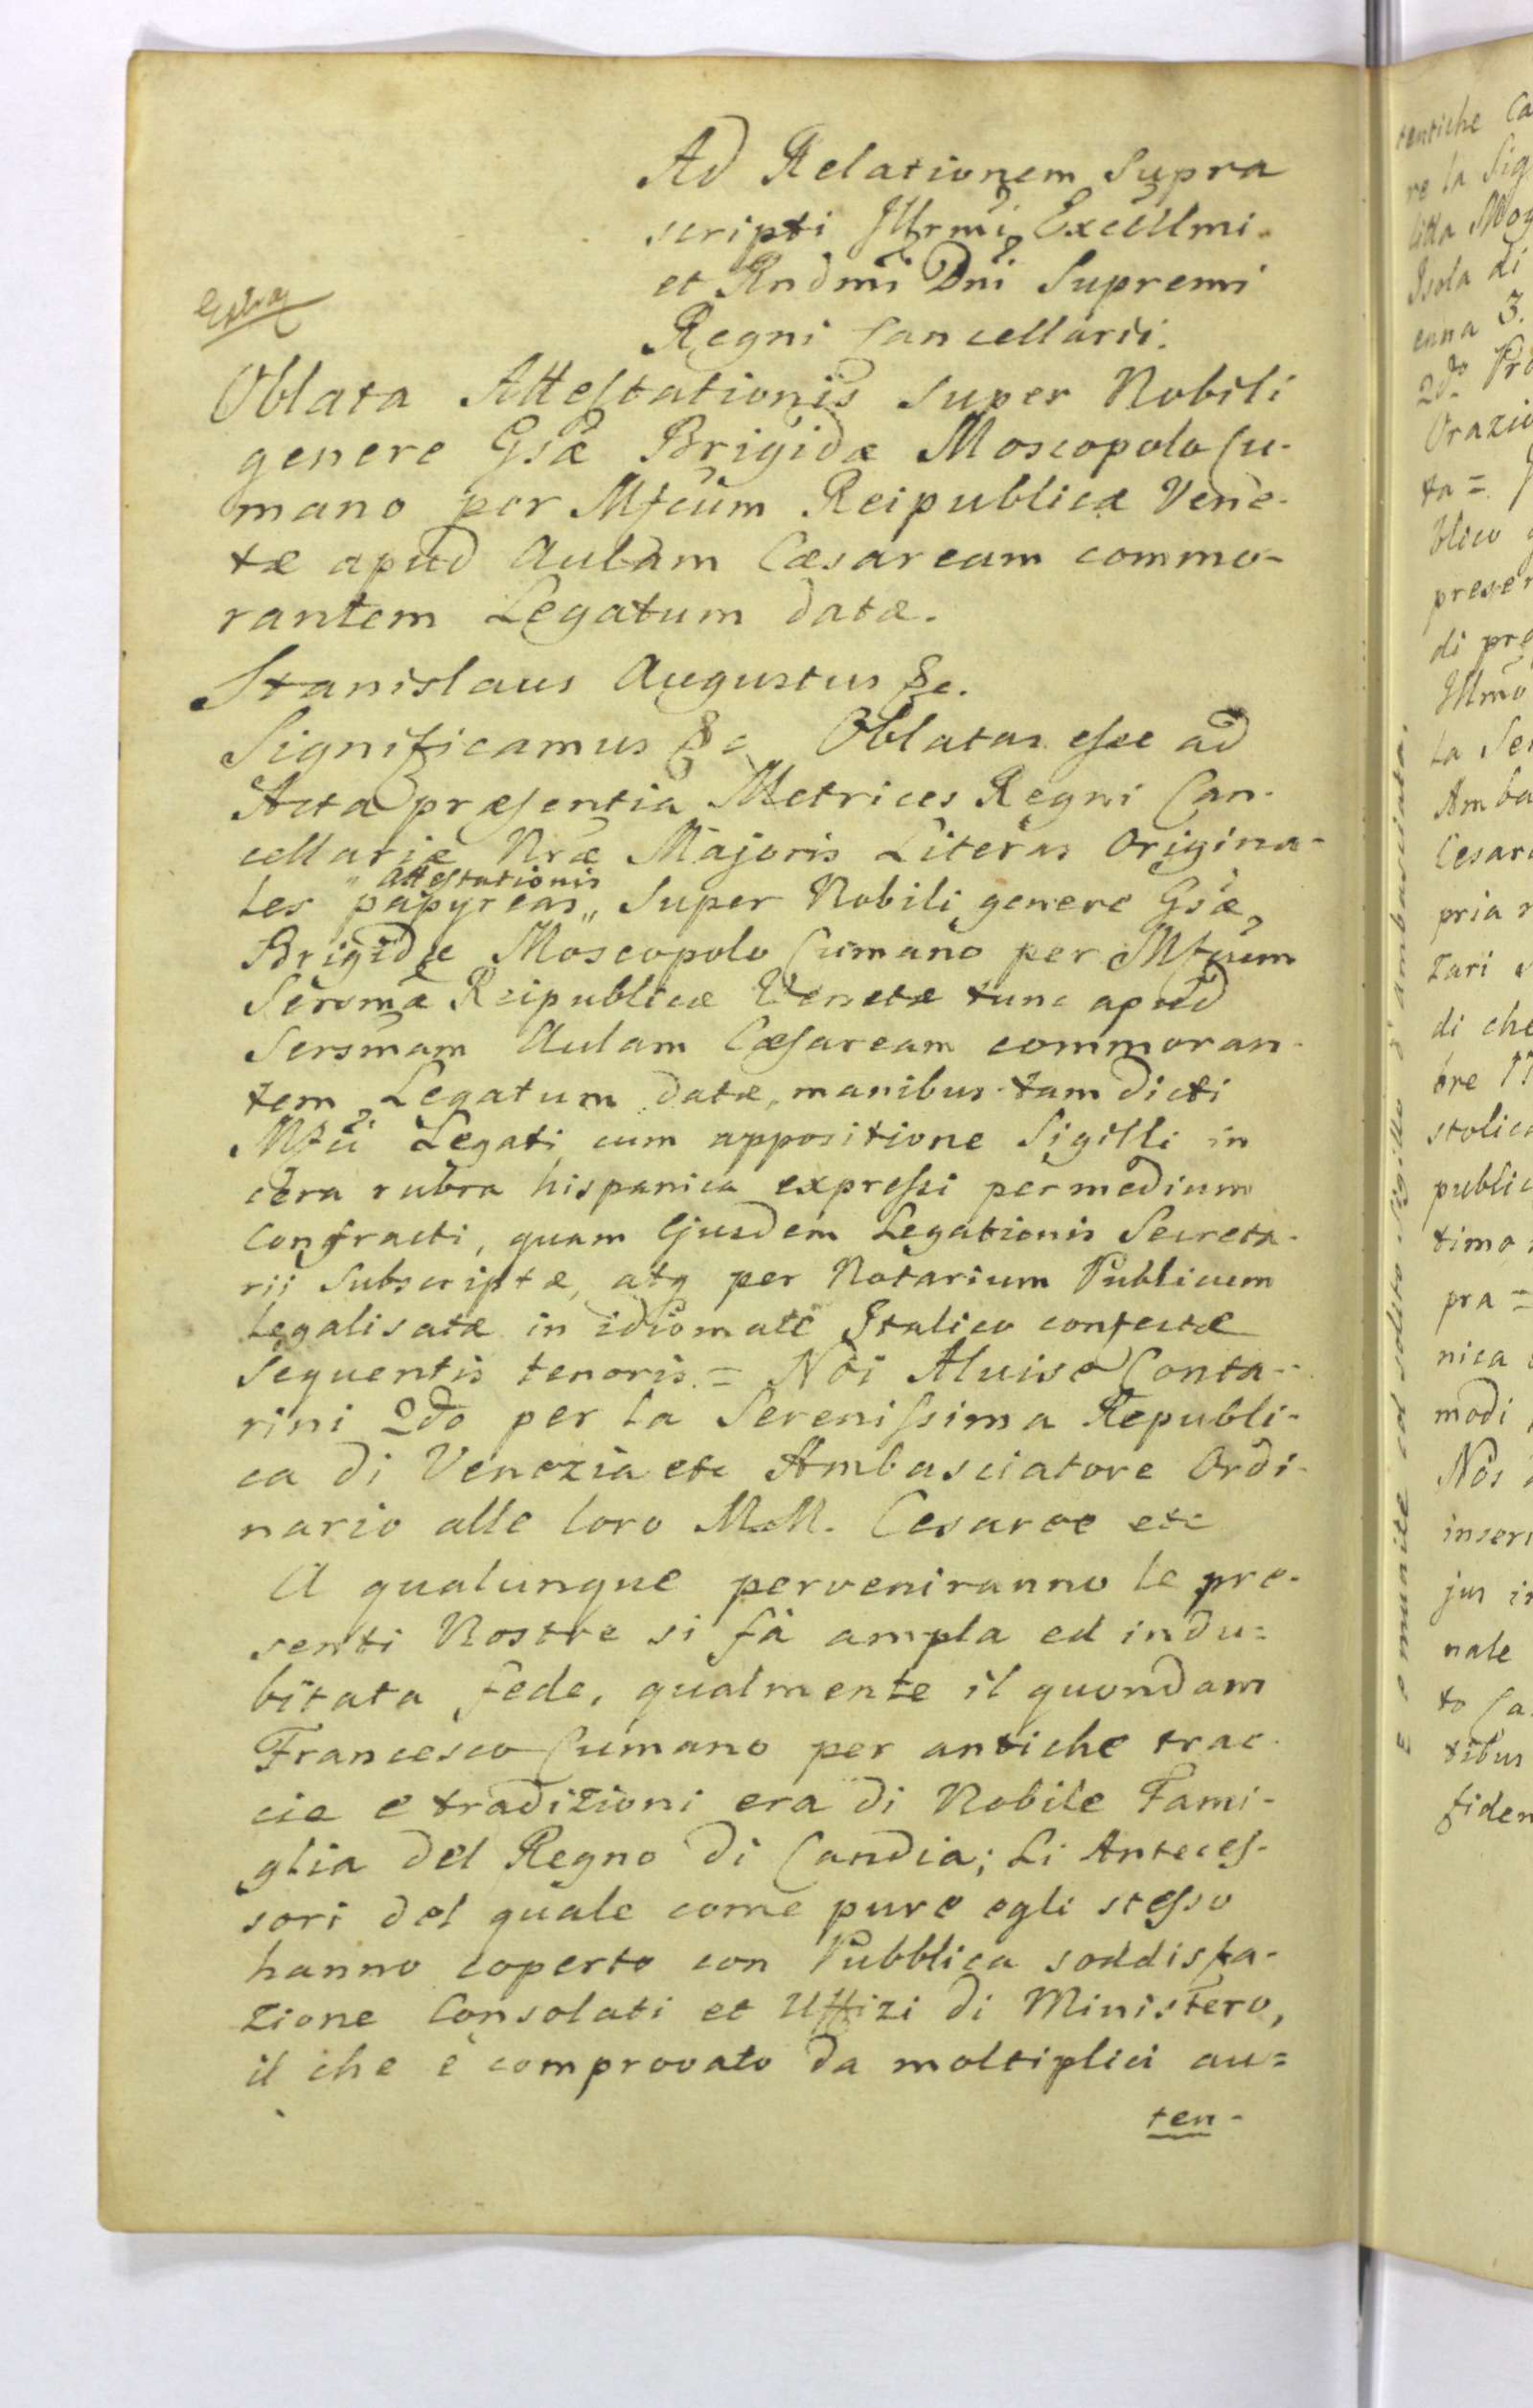 Ad Relationem Supra
scripti Illrmi Excellmi
et Rndmi Dni Supremi
Regni Cancellarii.
Oblata Attestationis super Nobili
genere Gsæ Brigidæ Moscopolo Cu-
mano per Mfcum Reipublicæ Vene-
tæ apud Aulam Cæsaream commo-
rantem Legatum datæ.
Stanislaus Augustus &c.
Significamus &c Oblatas esse ad
Acta præsentia Metrices Regni Can-
cellariæ Nræ Majoris Literas Origina-
les papyreas „ Attestationis „ Super Nobili genere Gsæ
Brigidæ Moscopolo Cumano per Mfcum
Sersmæ Reipublicæ Venetæ tunc apud
Sersmam Aulam Cæsaream commoran-
tem Legatum datæ, manibus tam dicti
Mfci Legati cum appositione Sigilli in
cera rubra hispanica expressi per medium
confracti, quam Ejusdem Legationis Secreta-
rii Subscriptæ, atq per Notarium Publicum
Legalisatæ in idiomate Italico confectæ
Sequentis tenoris. = Noi Aluise Conta-
rini 2do per la Serenissima Republi-
ca di Venezia etc Ambasciatore Ordi-
nario alle loro M.M. Cesaree etc
A qualunque perveniranno le pre-
senti Nostre si fà ampla ed indu=
bitata fede, qualmente il quondam
Francesco Cumano per antiche trac-
cie e tradizioni era di Nobile Fami-
glia del Regno di Candia; Li Anteces-
sori del quale come pure egli stesso
hanno coperto con Pubblica soddisfa-
zione Consolati et Uffizi di Ministero,
il che è comprovato da moltiplici au=
ten-
tentiche Ca
re la Sig
Isola di
enna 3.
2do Pro
Orazio
ta =
blico
preser
di pre
Illmo
la Ser
Amba
Cesar
pria
zari
di che
ore 17
stolica
public
timo
pra =
nica
modi
Nos
inser
jus in
nale
to Ca
tibus
fiden
E munite col solito sigillo d'ambasciata.